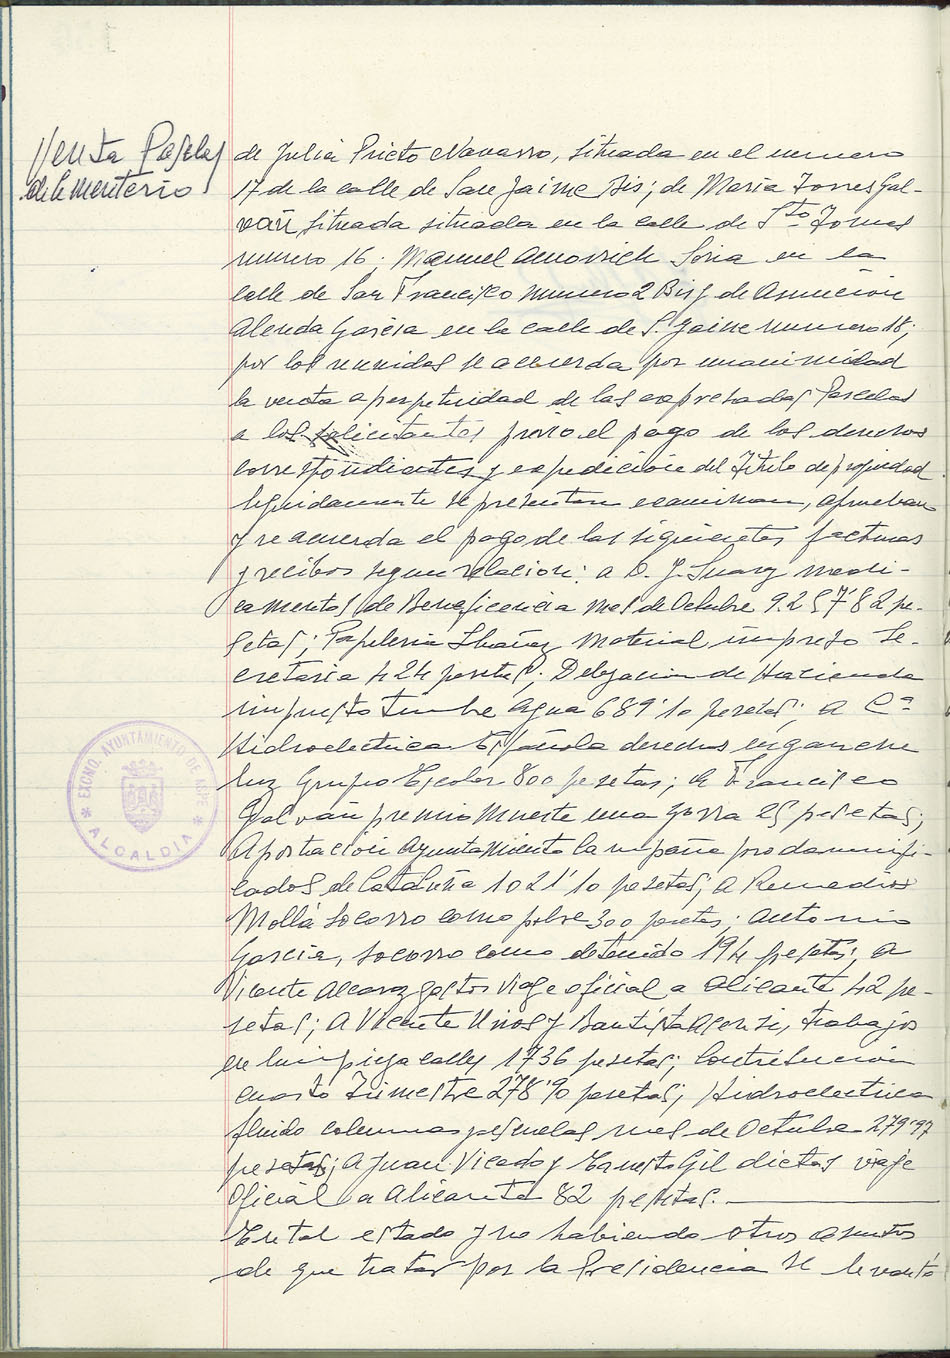 Venta Parcelas
de Cementerio
de Julia Prieto Navarro, situada en el numero
17 de la calle de San Jaime Bis; de Maria Torres Gal-
vañ situada situada en la calle de Sto Tomas
numero 16. Manuel Soria en la
calle de San Francisco numero 2 Bis y de Asunción
Alenda García en la calle de S. Jaime numero 18;
por los reunidos se acuerda por unanimidad
la venta a perpetuidad de las expresadas Parcelas
a los solicitantes previo el pago de los derechos
correspondientes y expedición del Titulo de propiedad.
Seguidamente se presentan examinan, aprueban
y se acuerda el pago de las siguientes facturas
y recibos segun relacion: a D. J. medi-
camentos de Beneficencia mes de Octubre 9.257'82 pe-
setas; Papeleria Ibañez material impreso Se-
cretaria 424 pesetas; Delegacion de Hacienda
impuesto timbre agua 689'10 pesetas; a Cª
Hidroelectrica Española derechos enganche
luz Grupo Escolar 800 pesetas; a Francisco
Galvañ premio muerte una zorra 25 pesetas;
Aportación Ayuntamiento Campaña pro damnifi-
cados de Cataluña 1021'10 pesetas; a Remedios
Mollá socorro como pobre 300 pesetas; Antonio
Garcia, socorro como detenido 194 pesetas; a
Vicente Alcaraz gastos viaje oficial a Alicante 42 pe-
setas; A Vicente y Bautista Asensi, trabajos
en limpieza calles 1736 pesetas; Contribución
cuarto Trimestre 278'90 pesetas; Hidroelectrica
fluido columnas y escuelas mes de Octubre 279'97
pesetas; A Juan Vicedo y Ernesto Gil dietas viaje
Oficial a Alicante 82 pesetas.
En tal estado y no habiendo otros asuntos
de que tratar por la Presidencia se levantó
EXCMO. AYUNTAMIENTO DE ASPE
* ALCALDIA *